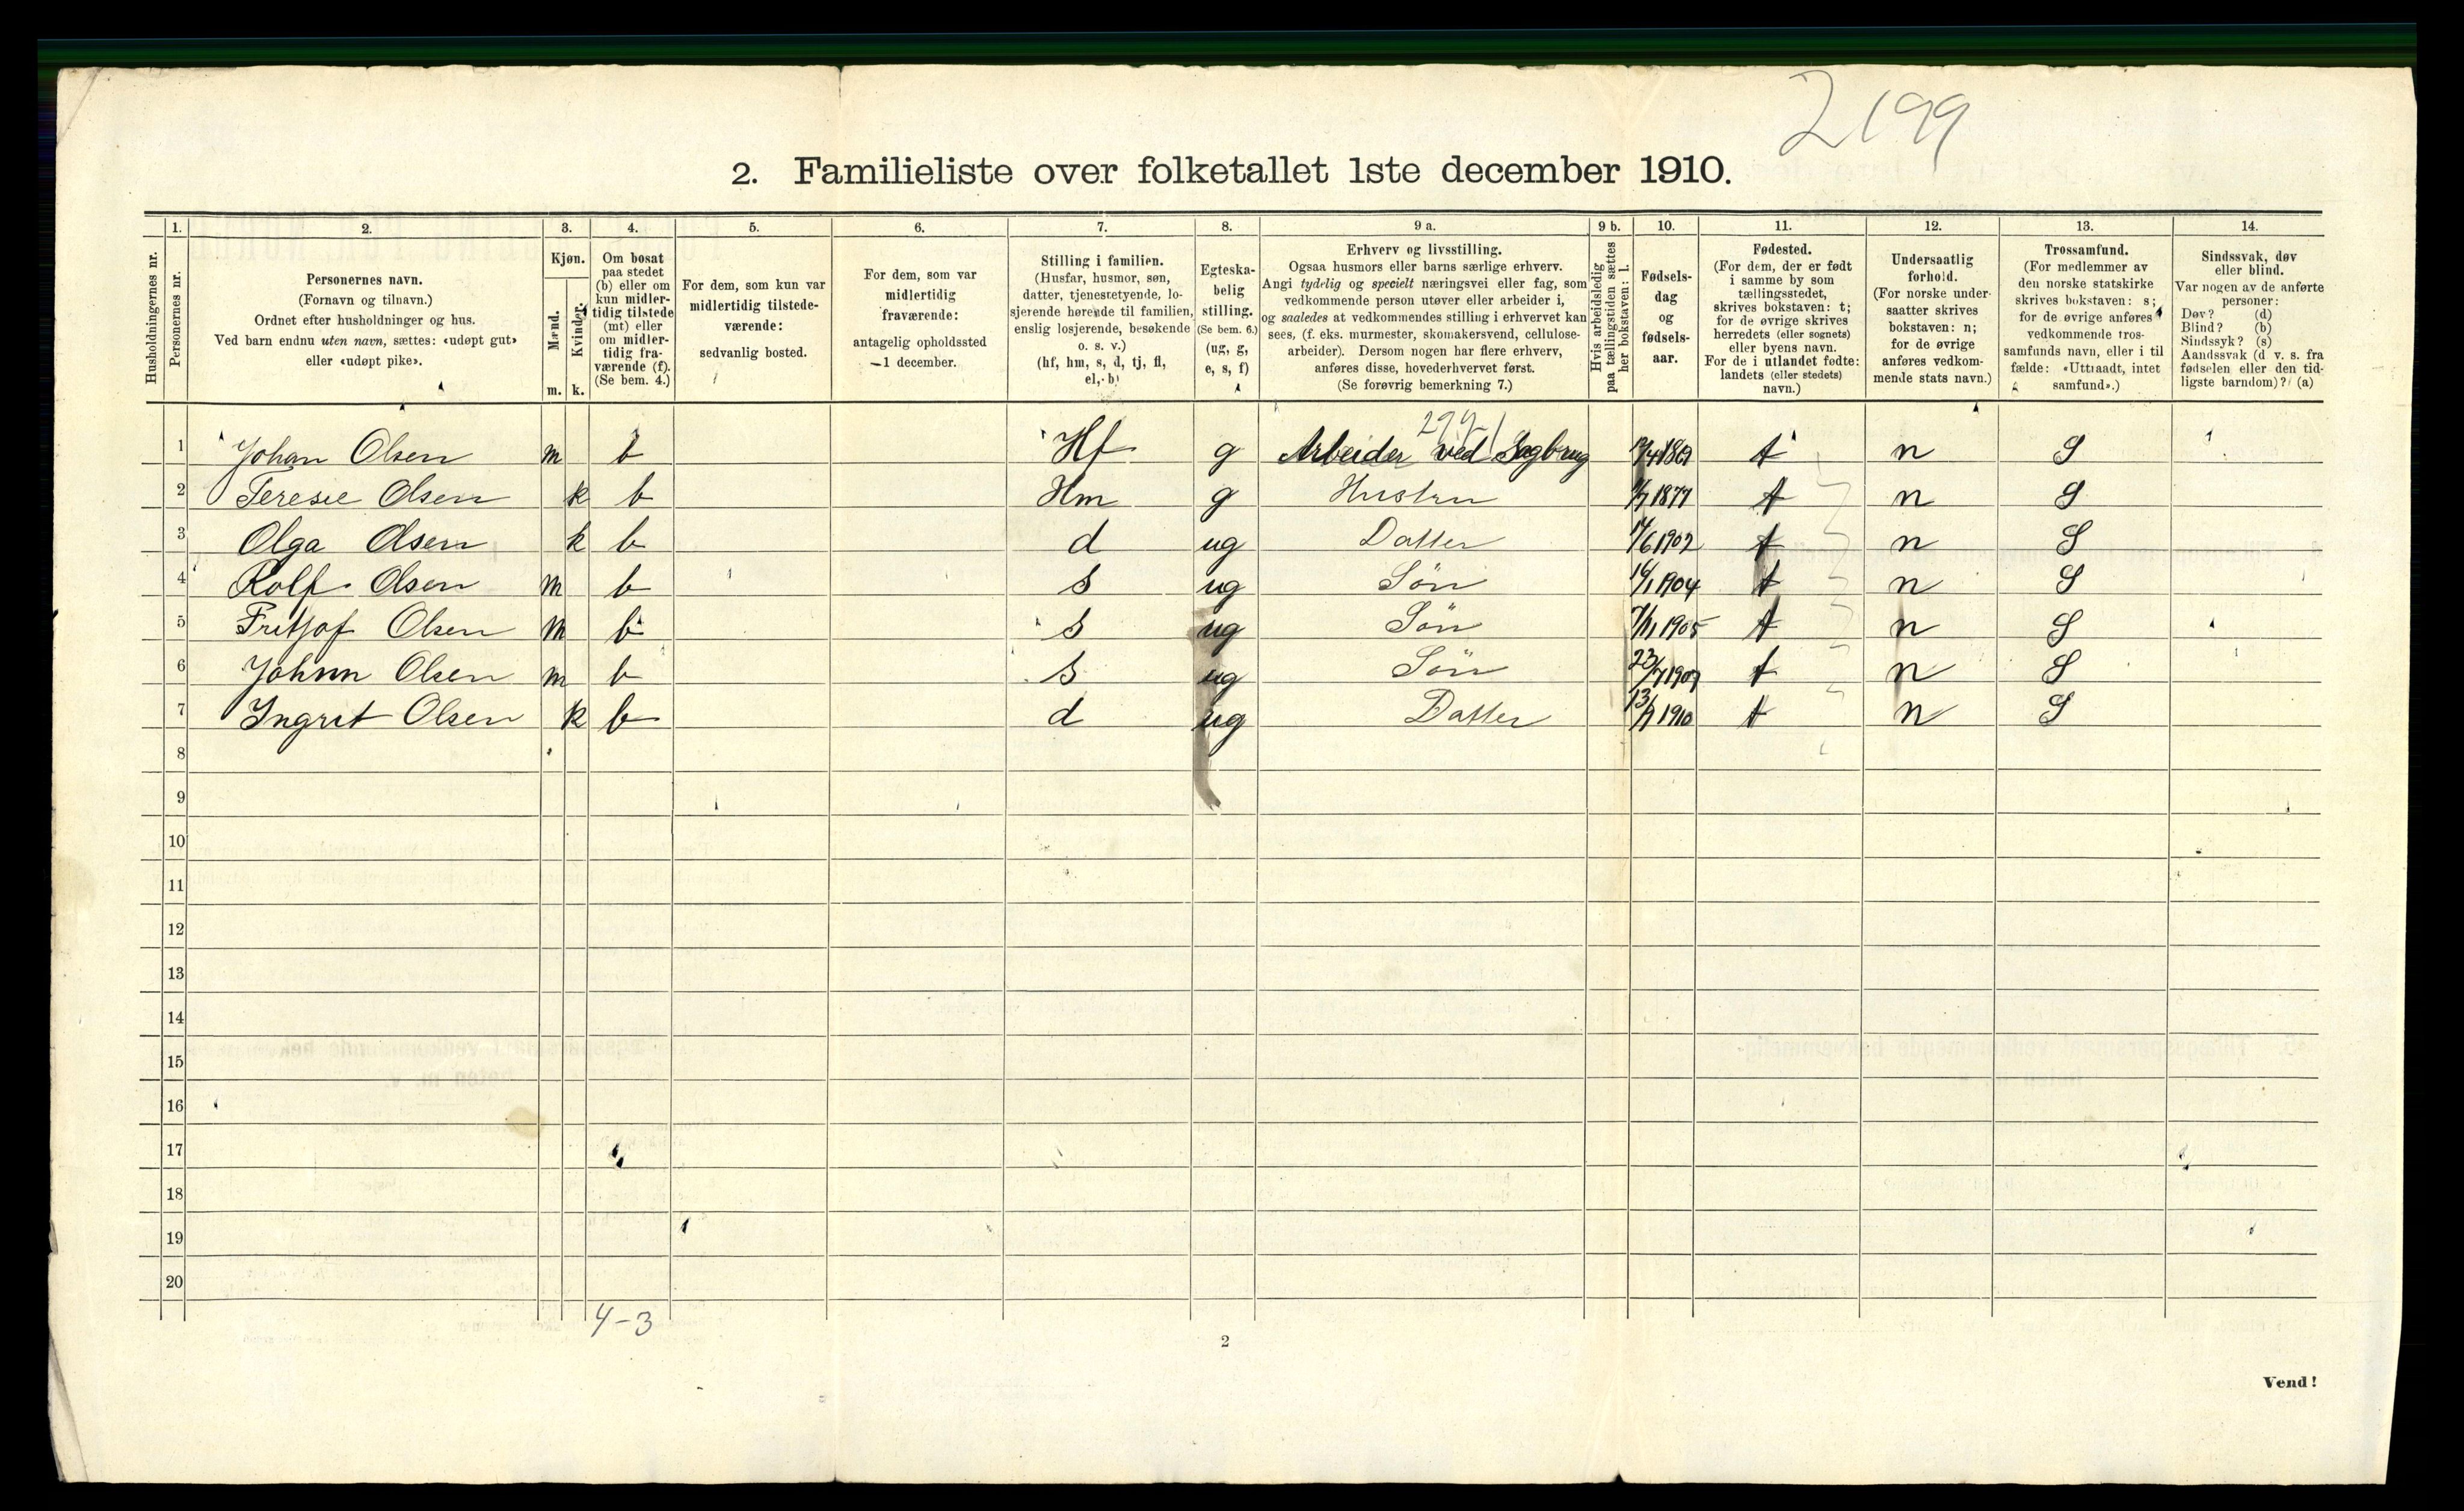 2199
2. Familieliste over folketallet 1ste december 1910.
1. 2. 3. 4. 5. 6. 7. 8. 9 a. 9 b. 10. 11. 12. 13. 14.
Husholdningernes nr.
Personernes nr.
Personernes navn.
(Fornavn og tilnavn.)
Ordnet efter husholdninger og hus.
Ved barn endnu uten navn, sættes: «udøpt gut»
eller «udøpt pike».
Kjøn.
Mænd.
Kvinder.
m. k.
Om bosat
paa stedet
(b) eller om
kun midler-
tidig tilstede
(mt) eller
om midler-
tidig fra-
værende (f).
(Se bem. 4.)
For dem, som kun var
midlertidig tilstede-
værende:
sedvanlig bosted.
For dem, som var
midlertidig
fraværende:
antagelig opholdssted
1 december.
Stilling i familien.
(Husfar, husmor, søn,
datter, tjenestetyende, lo-
sjerende hørende til familien,
enslig losjerende, besøkende
o. s. v.)
(hf, hm, s, d, tj, fl,
el, b)
Egteska-
belig
stilling.
(Se bem. 6.)
(ug, g,
e, s, f)
Erhverv og livsstilling.
Ogsaa husmors eller barns særlige erhverv.
Angi tydelig og specielt næringsvei eller fag, som
vedkommende person utøver eller arbeider i,
og saaledes at vedkommendes stilling i erhvervet kan
sees, (f. eks. murmester, skomakersvend, cellulose-
arbeider). Dersom nogen har flere erhverv,
anføres disse, hovederhvervet først.
(Se forøvrig bemerkning 7.)
Hvis arbeidsledig
paa tællingstiden sættes
her bokstaven: l.
Fødsels-
dag
og
fødsels-
aar.
Fødested.
(For dem, der er født
i samme by som
tællingsstedet,
skrives bokstaven: t;
for de øvrige skrives
herredets (eller sognets)
eller byens navn.
For de i utlandet fødte:
landets (eller stedets)
navn.)
Undersaatlig
forhold.
(For norske under-
saatter skrives
bokstaven: n;
for de øvrige
anføres vedkom-
mende stats navn.)
Trossamfund.
(For medlemmer av
den norske statskirke
skrives bokstaven: s;
for de øvrige anføres
vedkommende tros-
samfunds navn, eller i til
fælde: «Uttraadt, intet
samfund».)
Sindssvak, døv
eller blind.
Var nogen av de anførte
personer:
Døv? (d)
Blind? (b)
Sindssyk? (s)
Aandssvak (d v. s. fra
fødselen eller den tid-
ligste barndom)? (a)
1 Johan Olsen m b Hf g Arbeider ved Sagbrug t n S
2 Teresie Olsen k b Hm g Hustru 1877 t n S
3 Olga Olsen k b d ug Datter 1902 t n S
4 Rolf Olsen m b s ug Sön 16/1 1904 t n S
5 Fritjof Olsen m b s ug Sön 7/11 1905 t n S
6 Johan Olsen m b s ug Sön t n S
7 Ingrit Olsen k b d ug Datter 1910 t n S
8
9
10
11
12
13
14
15
16
17
18
19
20
4-3
2
Vend!